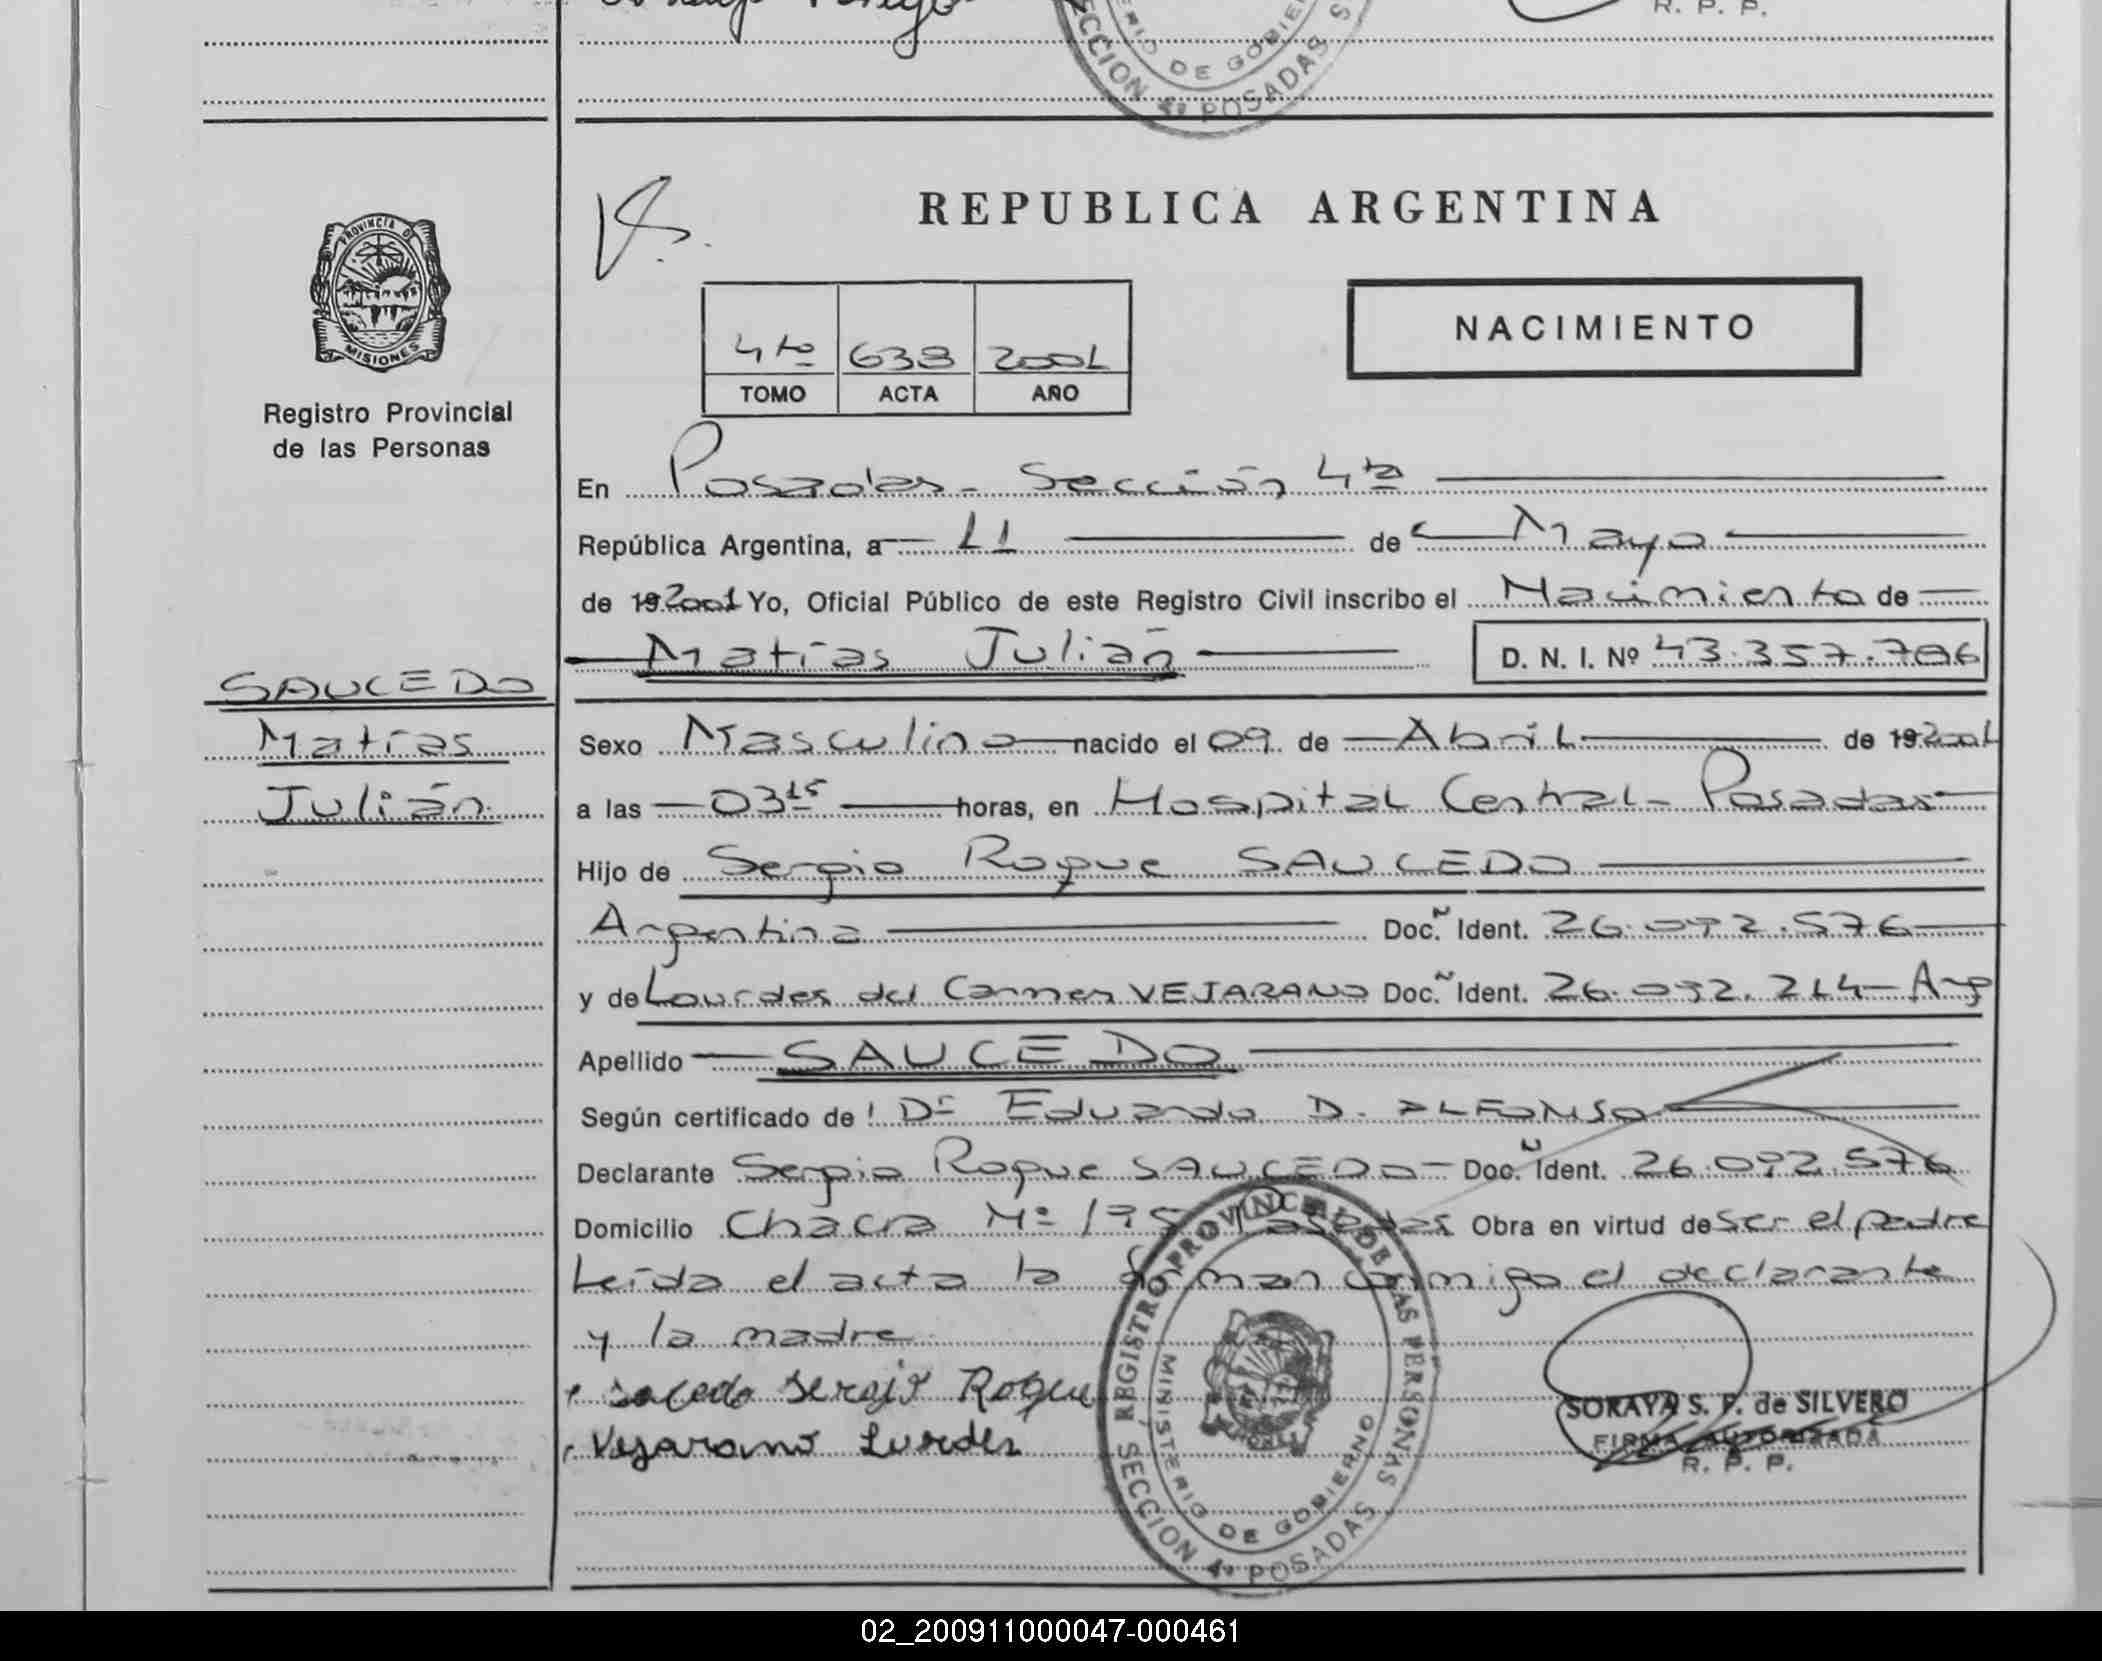 R. P. P.
MINISTERIO DE GOBIERNO
SECCION 4ª POSADAS
PROVINCIA DE
MISIONES
Registro Provincial
de las Personas
SAUCEDO
Matías
Julián
REPUBLICA ARGENTINA
NACIMIENTO
4to 638 2001
TOMO ACTA AÑO
En Posadas - Sección 4ta
República Argentina, a 11 de Mayo
de 19 2001 Yo, Oficial Público de este Registro Civil inscribo el Nacimiento de
Matías Julián D. N. I. Nº 43.357.786
Sexo Masculino nacido el 09 de Abril de 19 2001
a las 03 15 horas, en Hospital Central - Posadas
Hijo de Sergio Roque SAUCEDO
Argentina Doc. Ident. 26.092.576
y de Lourdes del Carmen VEJARANO Doc. Ident. 26.092.214 - Arg
Apellido SAUCEDO
Según certificado de Dr Eduardo D. ALFONSO
Declarante Sergio Roque SAUCEDO - Doc. Ident. 26.092.576
Domicilio Chacra Nº 195 Posadas Obra en virtud de ser el padre
Leída el acta la firman conmigo el declarante
y la madre
Sacedo Sergio Roque
Vejarano Lurdes
REGISTRO PROVINCIAL DE LAS PERSONAS
MINISTERIO DE GOBIERNO
SECCION 4ª POSADAS
SORAYA S. F. de SILVERO
FIRMA AUTORIZADA
R. P. P.
02_200911000047-000461